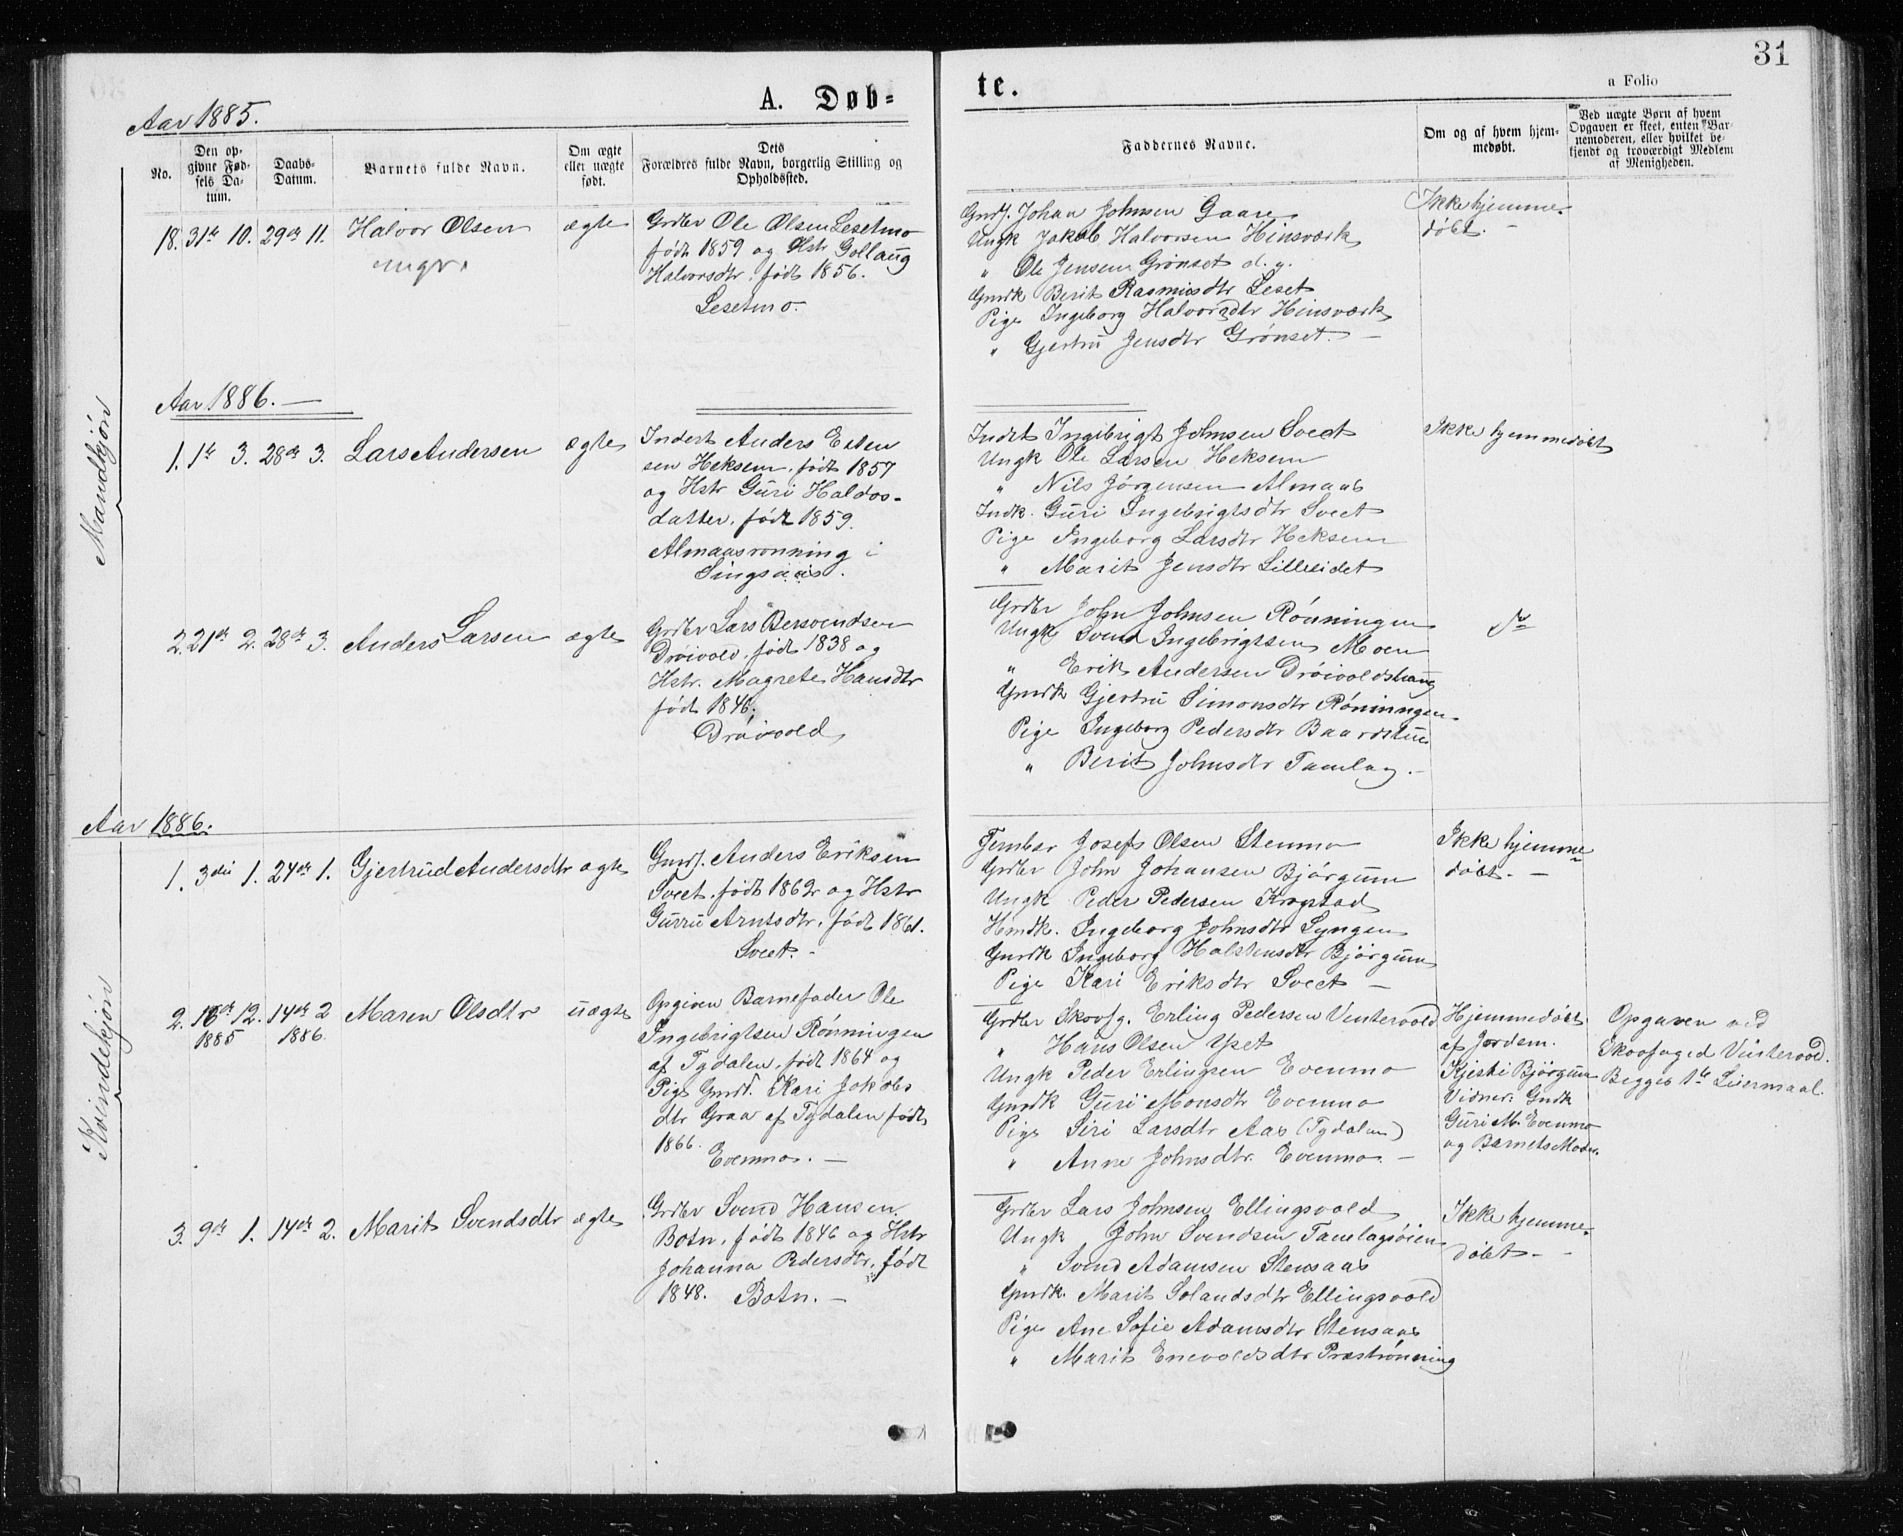 31
A. Døb-
te.
a Folio
Aar 1885.
No.
Den op-
givne Fød-
sels Da-
tum.
Daabs-
Datum.
Barnets fulde Navn.
Om ægte
eller uægte
født.
Dets
Forældres fulde Navn, borgerlig Stilling og
Opholdssted.
Faddernes Navne.
Om og af hvem hjem-
medøbt.
Ved uægte Børn af hvem
Opgaven er skeet, enten Bar-
nemoderen, eller hvilket be-
kjendt og troværdigt Medlem
af Menigheden.
Mandkjøn
18. 31te 10. 29de 11. Halvor Olsen
ægte
Grdbr Ole Olsen Lesetmo
født 1859 og Hstr Gollaug
Halvorsdtr, født 1856.
Lesetmo.
Gmdf. Johan Johnsen Gaare
Ungk Jakob Halvorsen Hinsværk
" Ole Jensen Grönset d. y.
Gmdk Berit Rasmusdtr Leset
Pige Ingeborg Halvorsdtr Hinsværk
" Gjertru Jensdtr Grönset. —
Ikke hjemme-
døbt. —
Aar 1886. —
1. 1te 3. 28de 3. Lars Andersen
ægte
Inderst Anders Esten
sen Heksem, født 1857
og Hstr Guri Haldos-
datter, født 1859.
Almaasrønning i
Singsaas.
Indst Ingebrigt Johnsen Sveet
Ungk Ole Larsen Heksem
" Nils Jörgensen Almaas
Indk. Guri Ingebrigtsdtr Sveet
Pige Ingeborg Larsdtr Heksem
" Marit Jensdtr Lilleeidet
Ikke hjemmedøbt
2. 21de 2. 28de 3. Anders Larsen
ægte
Grdbr Lars Bersvendsen
Dröivold, født 1838 og
Hstr. Magrete Hansdtr
født 1846.
Dröivold
Grdbr John Johnsen Rönningen
Ungk Svend Ingebrigtsen Moen
" Erik Andersen Dröivoldshaug
Gmdk Gjertru Simonsdtr Rönningen
Pige Ingeborg Pedersdtr Baardstuu
" Berit Johnsdtr Tamlag. —
Aar 1886.
Kvindekjøn
1. 3die 1. 24de 1. Gjertrud Andersdtr
ægte
Gmdf. Anders Eriksen
Sveet, født 1862 og Hstr
Gurru Arntsdtr, født 1861.
Sveet. -
Jernbar Josef Olsen Stenmo
Grdbr John Johansen Björgum
Ungk Peder Pedersen Krogstad
Hmdk. Ingeborg Johnsdtr Lyngen
Gmdk Ingeborg Halstensdtr Björgum
Pige Kari Eriksdtr Sveet —
Ikke hjemme-
døbt. —
2. 12. 14de 2 Maren Olsdtr
1885 1886.
uægte
Opgiven Barnefader Ole
Ingebrigtsen Rönningen
af Tydalen, født 1864 og
Pige Gmdt. Kari Jakobs
dtr Graa af Tydalen født
1866. Evenmo. —
Grdbr Skovfg. Erling Pedersen Vintervold
" Hans Olsen Yset
Ungk Peder Erlingsen Evenmo
Gmdk Guri Monsdtr Evenmo
Pige Siri Larsdtr Aas (Tydalen)
" Anne Johnsdtr. Evenmo. —
Hjemmedøbt
af Jordem.
Kjesti Björgum
Vidner. Gmdk
Guri M. Evenmo
og Barnets Moder.
Opgaven ved
Skovfoged Vintervold.
Begges 1te Leiermaal.
3. 9de 1. 14de 2. Marit Svendsdtr
ægte
Grdbr Svend Hansen
Botn, født 1846 og Hstr
Johanna Pedersdtr, født
1848. Botn. —
Grdbr Lars Johnsen Ellingsvold
Ungk John Svendsen Tamlagsöien
" Svend Adamsen Stensaas
Gmdk. Marit Solandsdtr Ellingsvold
Pige Ane Sofie Adamsdtr Stensaas
" Marit Enevoldsdtr Præströnning
Ikke hjemme-
døbt. —